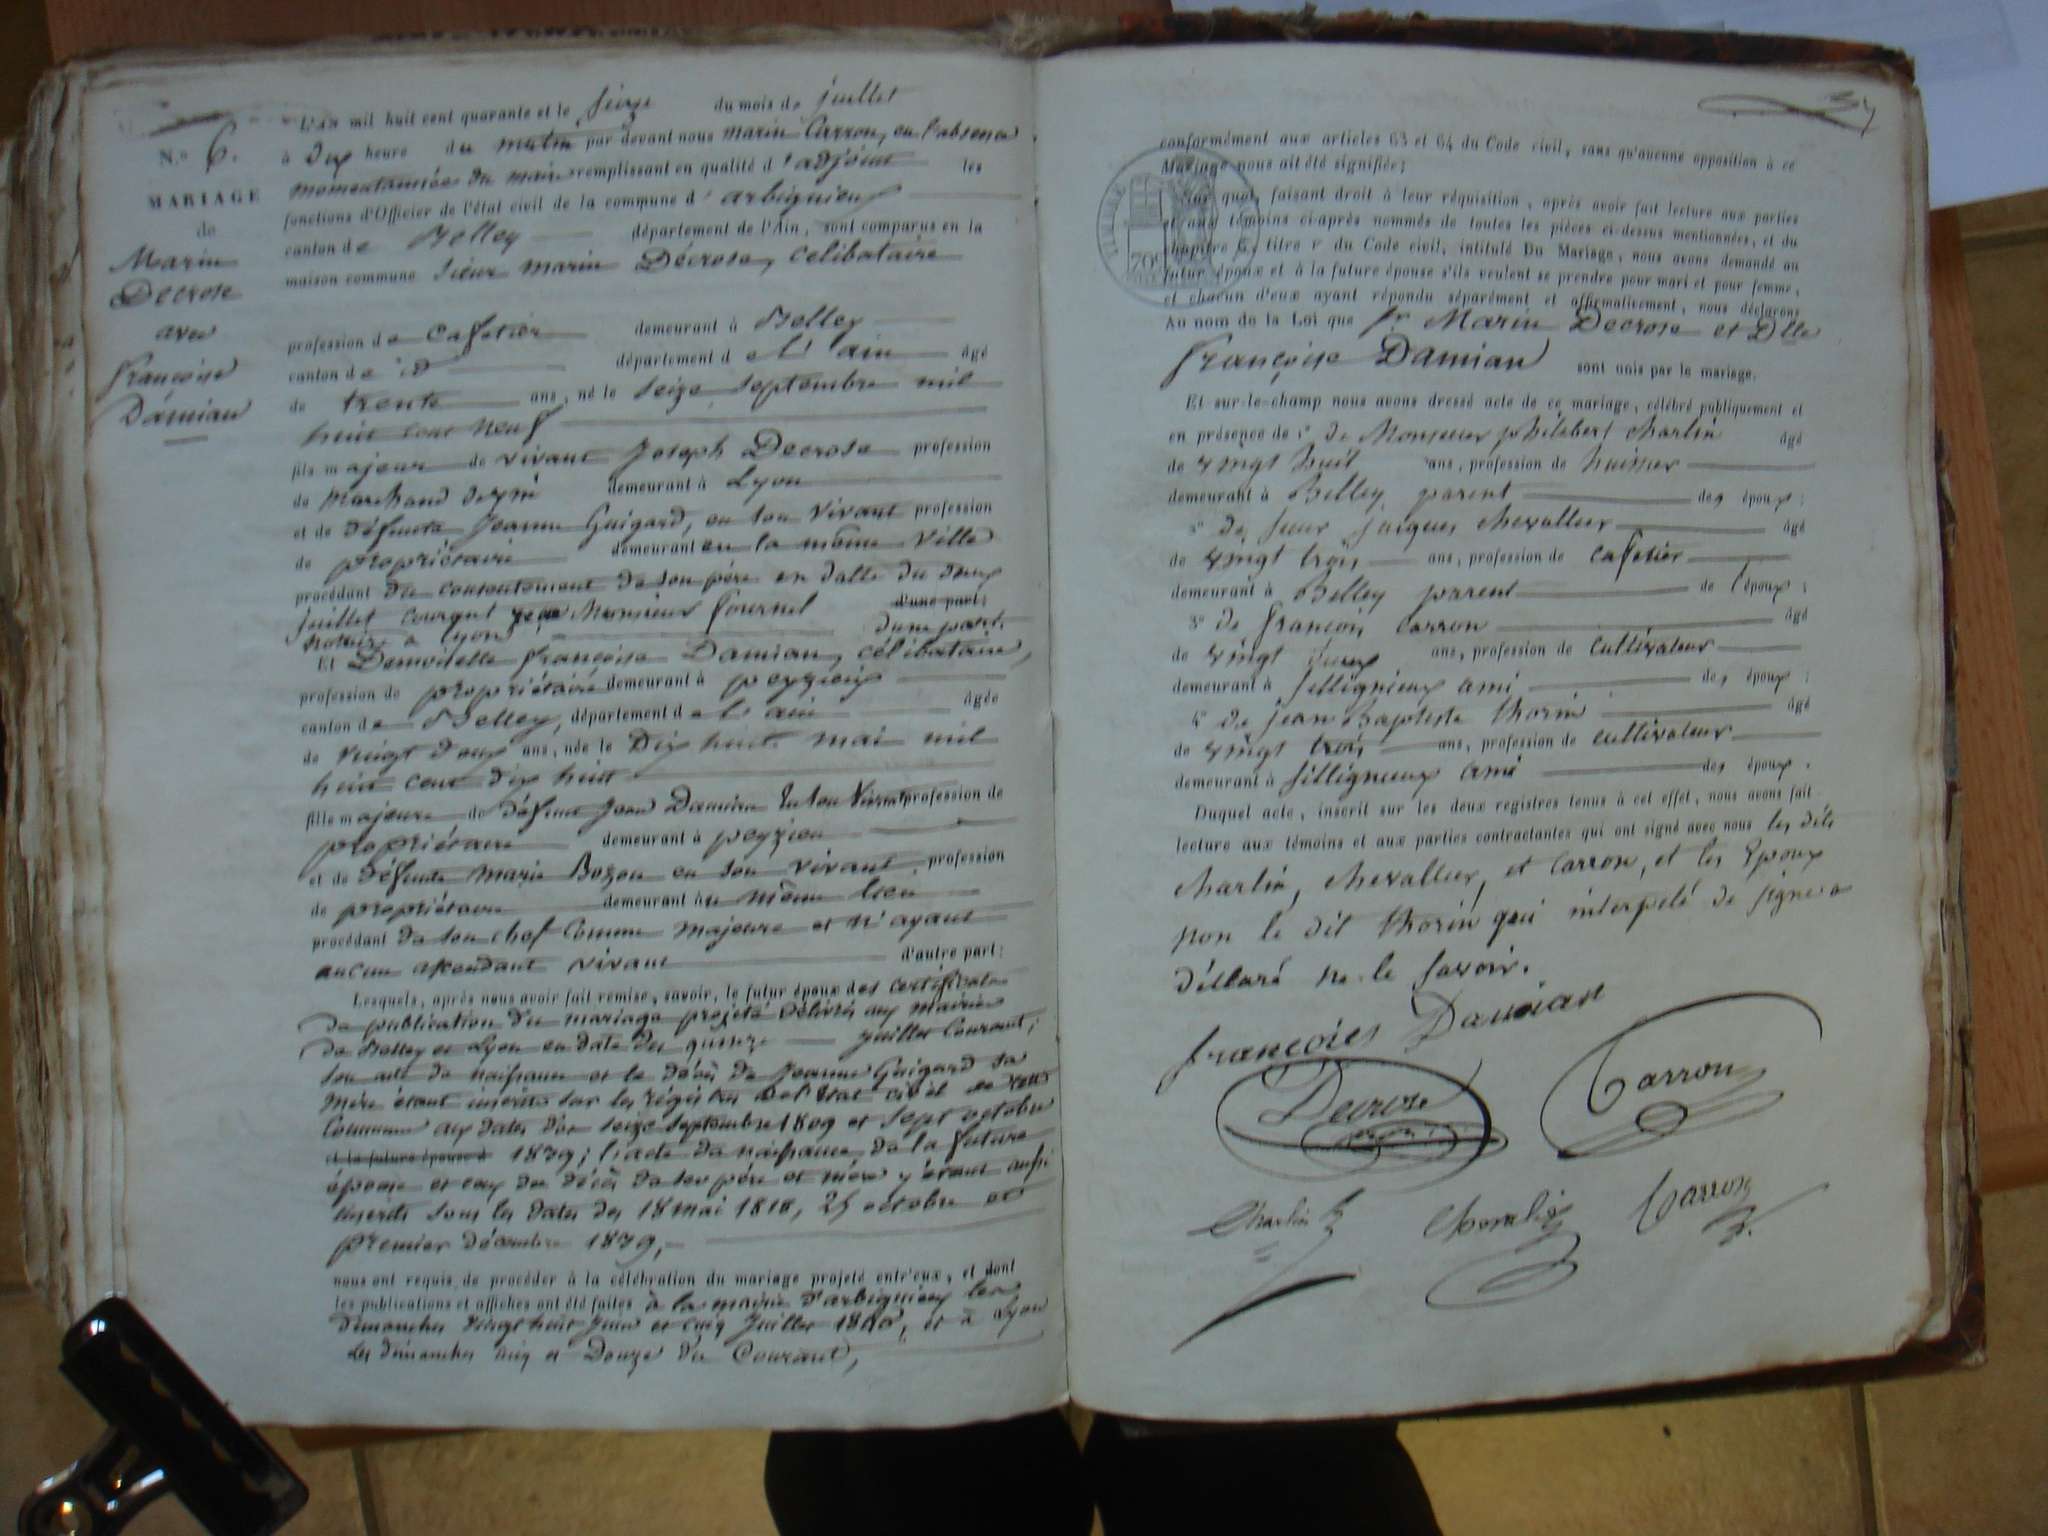 N.º 6.
MARIAGE
de
Marin
Decrose
avec
françoise
Damian
L'An mil huit cent quarante et le seize du mois de juillet
à dix heure du matin par devant nous marin Carron, en l'absence
momentannée du maire remplissant en qualité d'adjoint les
fonctions d'Officier de l'état civil de la commune d'arbignieu
canton de Belley département de l'Ain, sont comparus en la
maison commune sieur marin Décrose, célibataire
profession de cafetier demeurant à Belley
canton de id département de l'ain âgé
de trente ans, né le seize septembre mil
huit cent neuf
fils majeur de vivant Joseph Decrose profession
de marchand demeurant à Lyon
et de défunte Jeanne Guigard, en son vivant profession
de propriétaire demeurant en la même ville
procédant du consentement de son père en datte du deux
juillet courant Monsieur fournel d'une part;
notaire a lyon d'une part.
Et Demoiselle françoise Damian, célibataire,
profession de propriétaire demeurant à peyzieu
canton de Belley, département de l'ain âgée
de vingt deux ans, née le Dix huit mai mil
huit cent dix huit
fille majeure de défunt Jean Damian en son vivant profession de
propriétaire demeurant à peyzieu
et de défunte marie Bozon en son vivant profession
de propriétaire demeurant au même lieu
procédant de son chef comme majeure et n'ayant
aucun ascendant vivant d'autre part:
Lesquels, après nous avoir fait remise, savoir, le futur époux des certificats
de publication du mariage projeté délivrés aux mairies
de Belley et Lyon en date du quinze juillet courant;
son acte de naissance et le décès de Jeanne Guigard sa
mère étant inscrits sur les régistres de l'état civil de cette
commune aux dates des seize septembre 1809 et sept octobre
et la future épouse d 1839; l'acte de naissance de la future
épouse et ceux du décès de ses père et mère y étant aussi
inscrits sous les dates des 18 mai 1818, 25 octobre et
premier décembre 1839,
nous ont requis de procéder à la célébration du mariage projeté entr'eux, et dont
les publications et affiches ont été faites à la mairie d'arbignieu les
dimanches vingt huit juin et cinq juillet 1840, et à Lyon
les dimanches cinq et Douze du Courant,
34
conformément aux articles 63 et 64 du Code civil, sans qu'aucune opposition à ce
Mariage nous ait été signifiée;
Sur quoi, faisant droit à leur réquisition, après avoir fait lecture aux parties
et aux témoins ci-après nommés de toutes les pièces ci-dessus mentionnées, et du
chapitre 6, titre v du Code civil, intitulé Du Mariage, nous avons demandé au
futur époux et à la future épouse s'ils veulent se prendre pour mari et pour femme,
et chacun d'eux ayant répondu séparément et affirmativement, nous déclarons
Au nom de la Loi que sr Marin Decrose et Dlle
françoise Damian sont unis par le mariage.
Et sur-le-champ nous avons dressé acte de ce mariage, célébré publiquement et
en présence de 1º de Monsieur philibert charlin âgé
de vingt huit ans, profession de huissier
demeurant à Belley parent des époux;
2º de sieur jacques chevallier âgé
de vingt trois ans, profession de cafetier
demeurant à Belley parent de l'époux;
3º de françois carron âgé
de vingt deux ans, profession de cultivateur
demeurant à sillignieux ami des époux;
4º de jean Baptiste thorin âgé
de vingt trois ans, profession de cultivateur
demeurant à sillignieux ami des époux.
Duquel acte, inscrit sur les deux registres tenus à cet effet, nous avons fait
lecture aux témoins et aux parties contractantes qui ont signé avec nous les dits
charlin, chevallier, et carron, et les Epoux
non le dit thorin qui interpelé de signe a
déclaré ne le savoir.
françoies Damian
Decrose
Carron
Charlin
Chevalier
Carron
70c